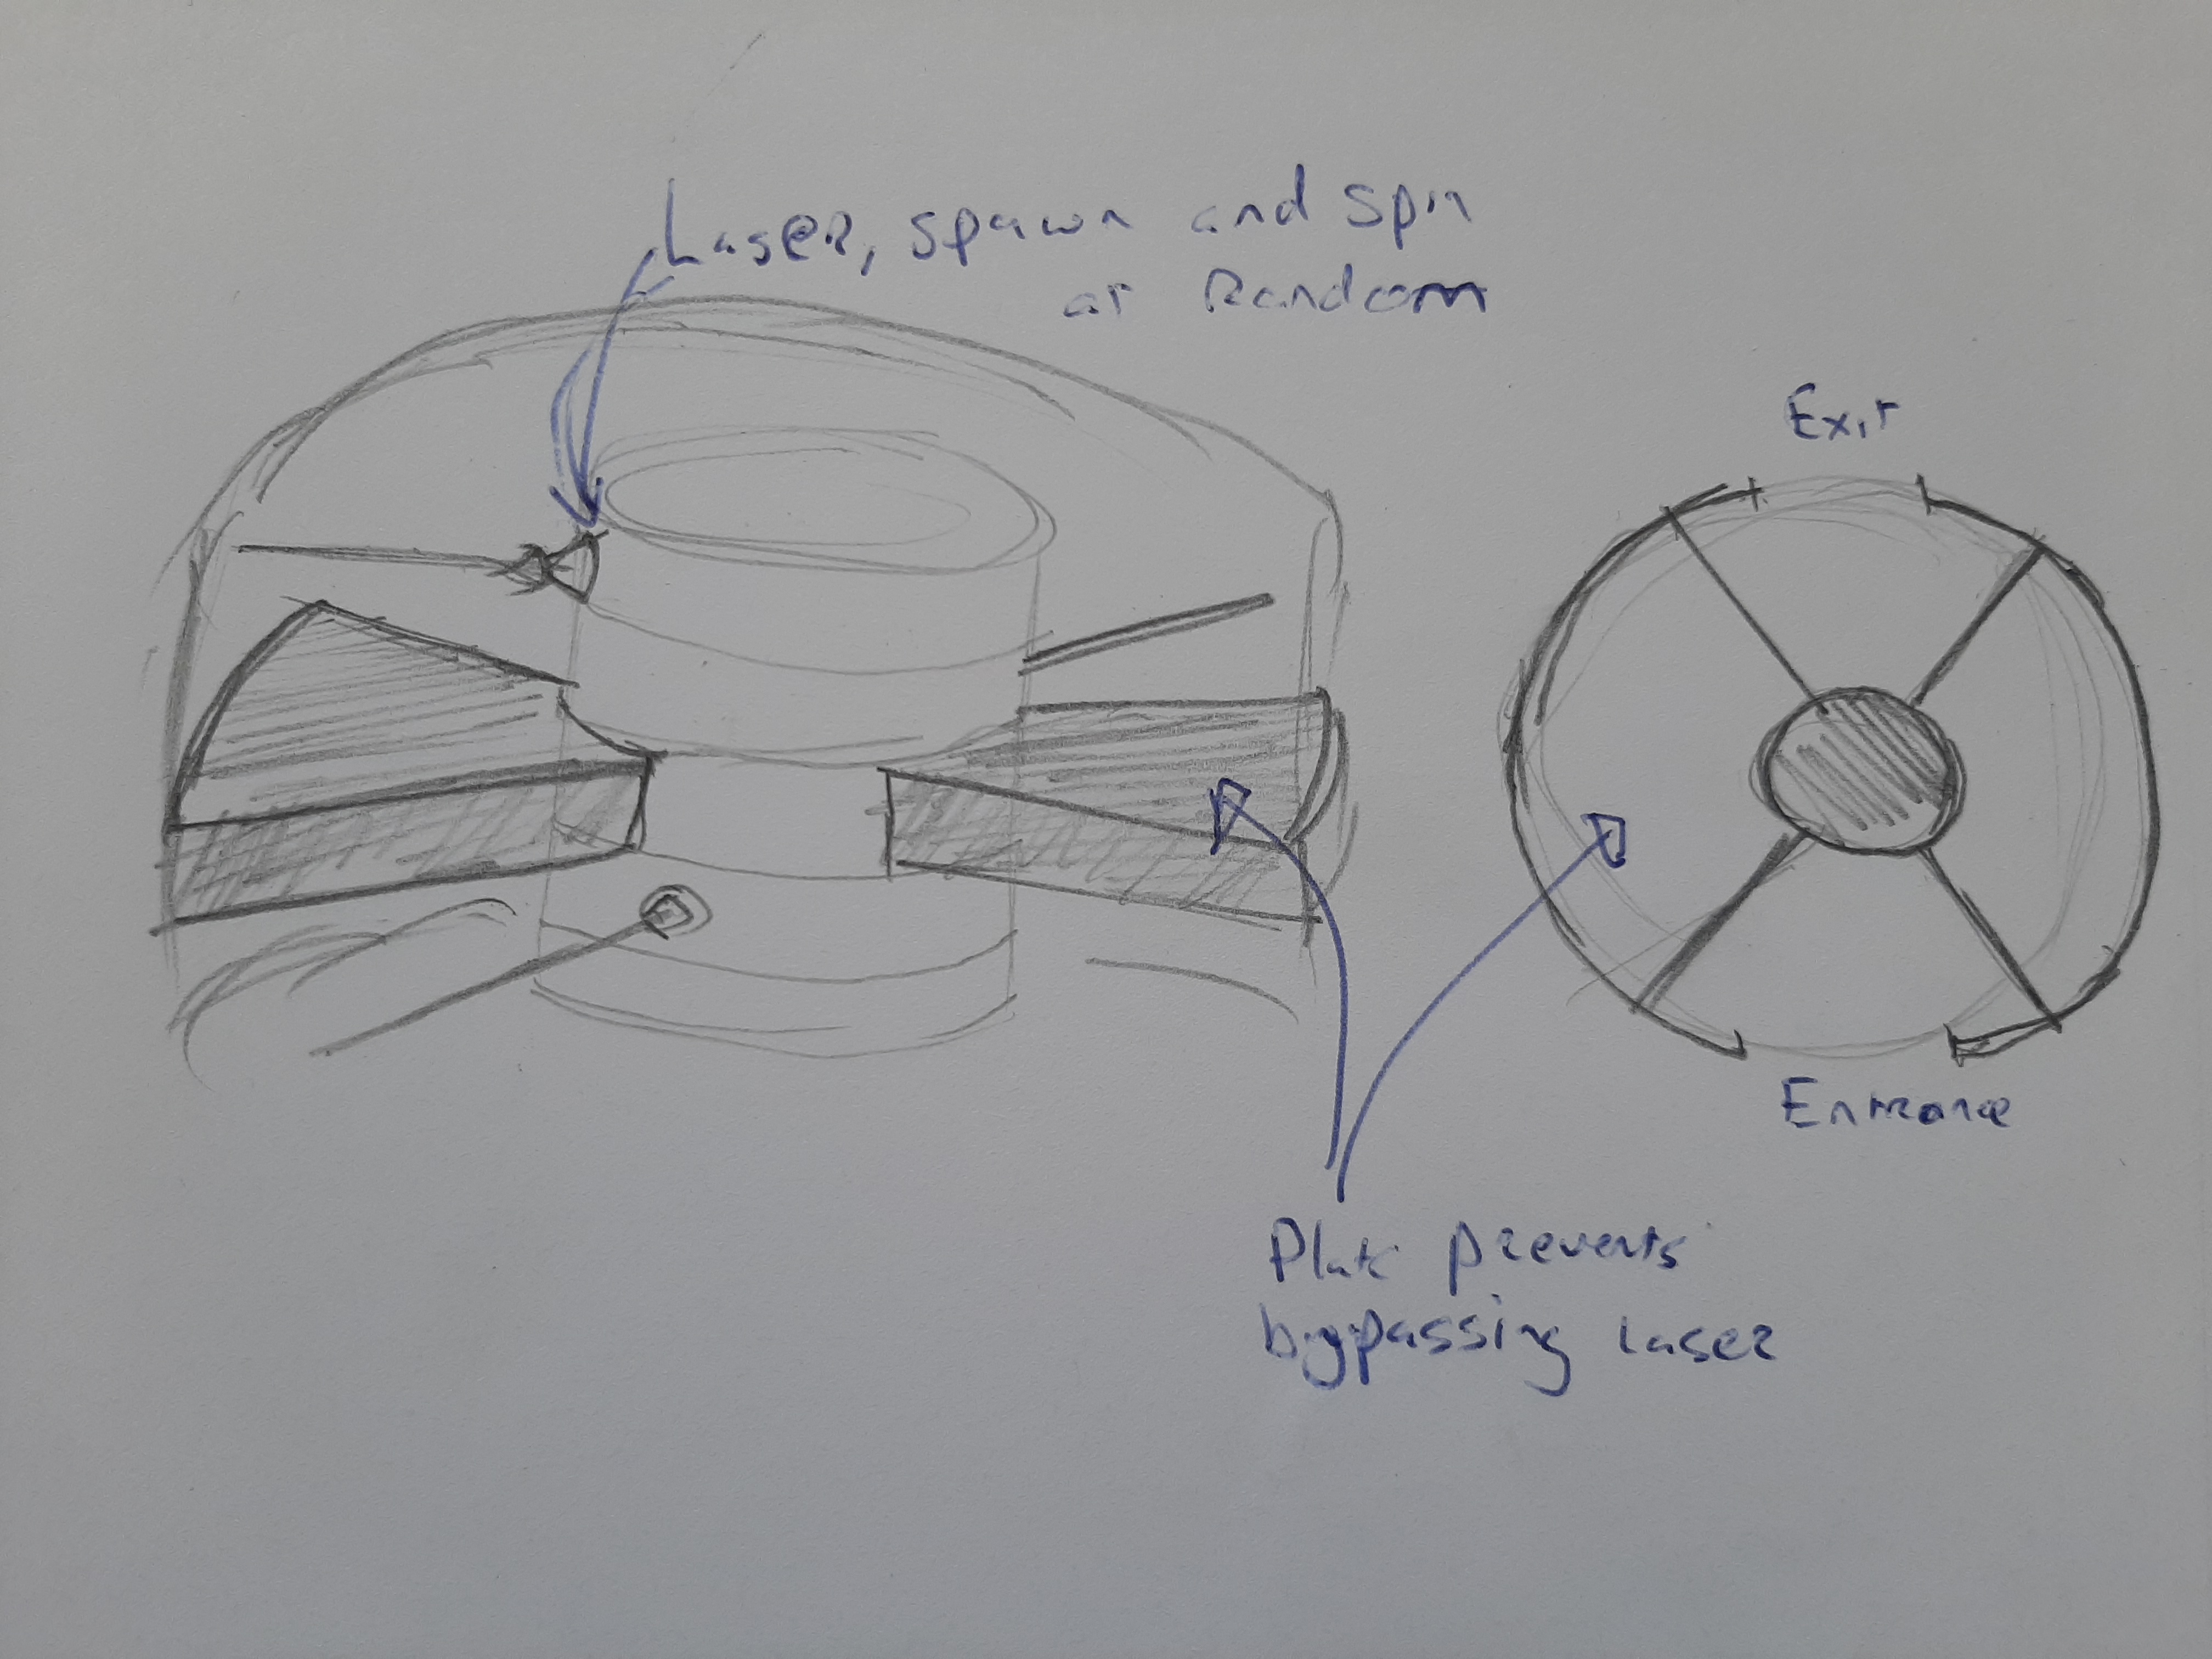 Laser, spawn and spin
at Random
Exit
Entrance
Plate prevents
bypassing laser